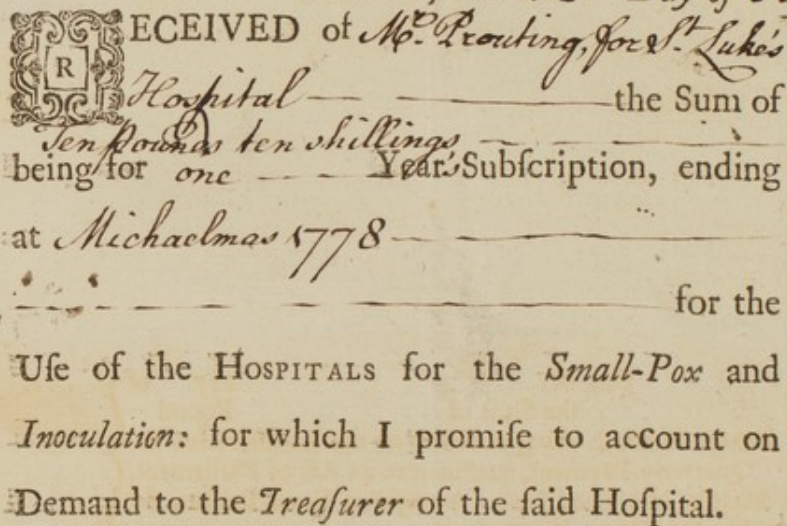 RECEIVED of Mr. Prouting, for St. Luke's
Hospital the Sum of
Ten pounds ten shillings
being for one Year's Subſcription, ending
at Michaelmas 1778
for the
Uſe of the HOSPITALS for the Small-Pox and
Inoculation: for which I promiſe to account on
Demand to the Treaſurer of the ſaid Hoſpital.